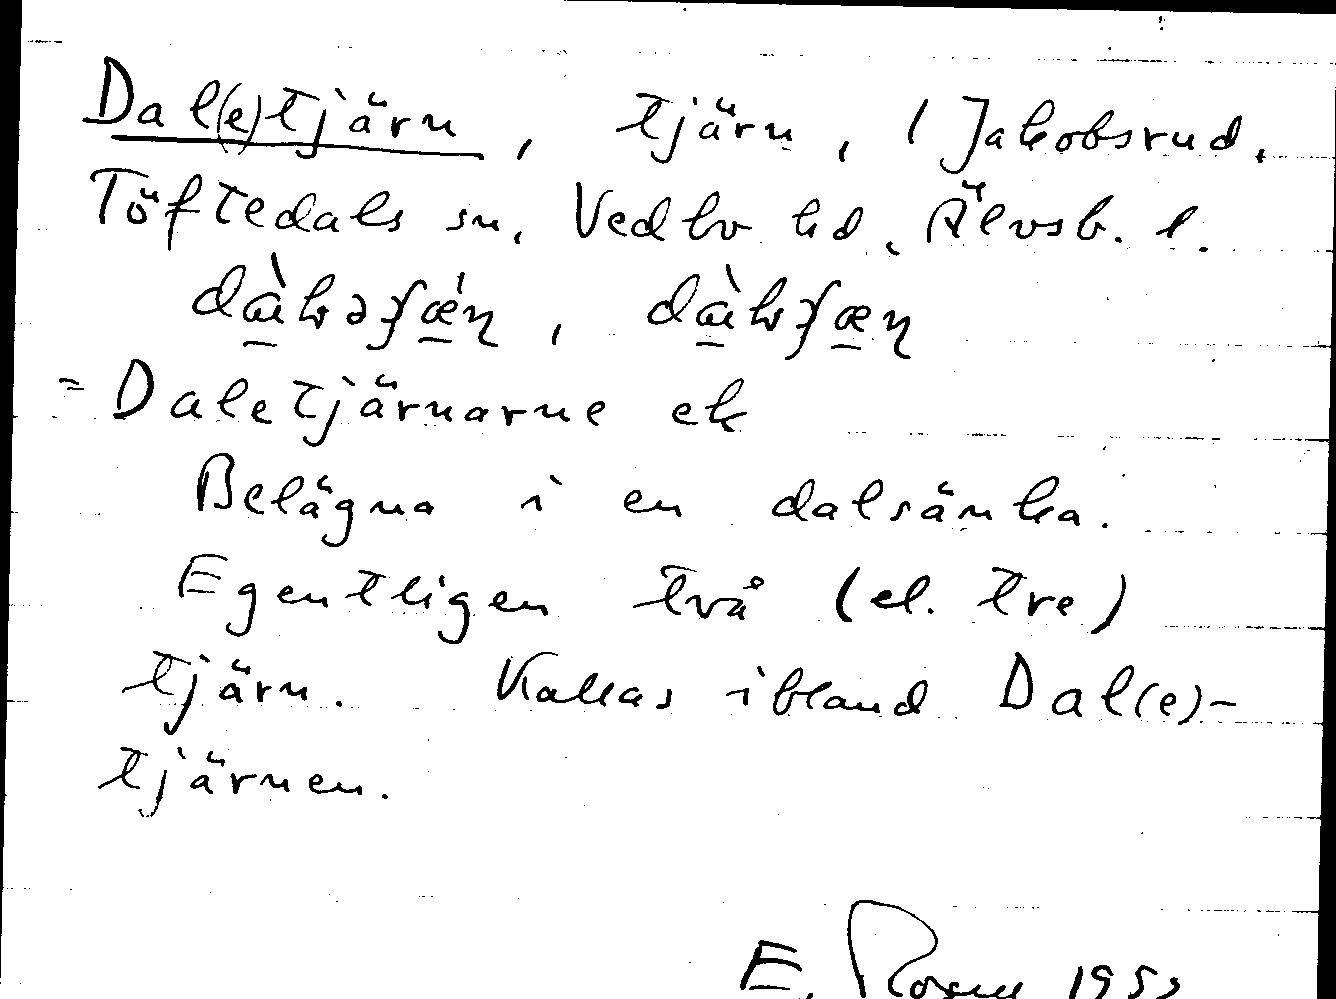 Dal(e)tjärn, tjärn, i Jakobsrud,
Töftedals sn, Vedbo hd, Älvsb. l.
= Daletjärnarne ek
Belägna i en dalsänka.
Egentligen två (el. tre)
tjärn. Kallas ibland Dal(e)-
tjärnen.
E. 195